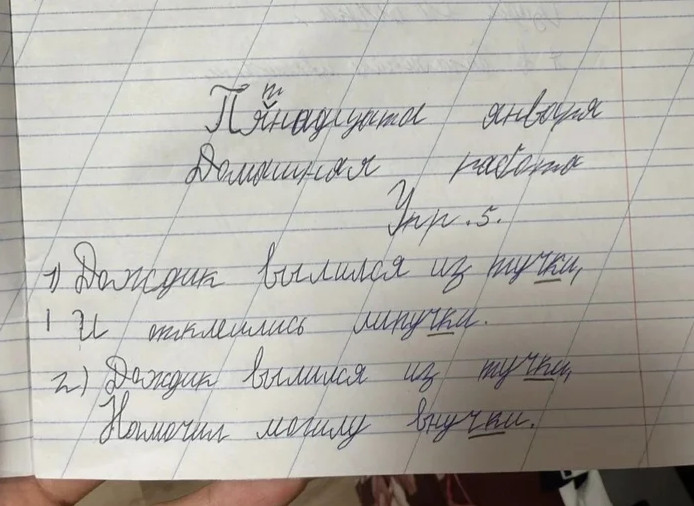 Пятнадцата января
Домашная работа
Упр. 5.
1) Дождик вылился из тучки,
И отклеились липучки.
2) Дождик вылился из тучки,
Намочил могилу внучки.